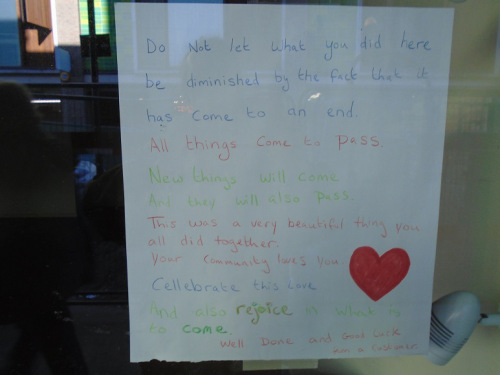 Do Not let what you did here
be diminished by the fact that it
has come to an end.
All things come to pass.
New things will come
And they will also pass.
This was a very beautiful thing you
all did together.
Your community loves you.
Cellebrate this love
And also rejoice in what is
to come.
Well Done and Good Luck
a customer